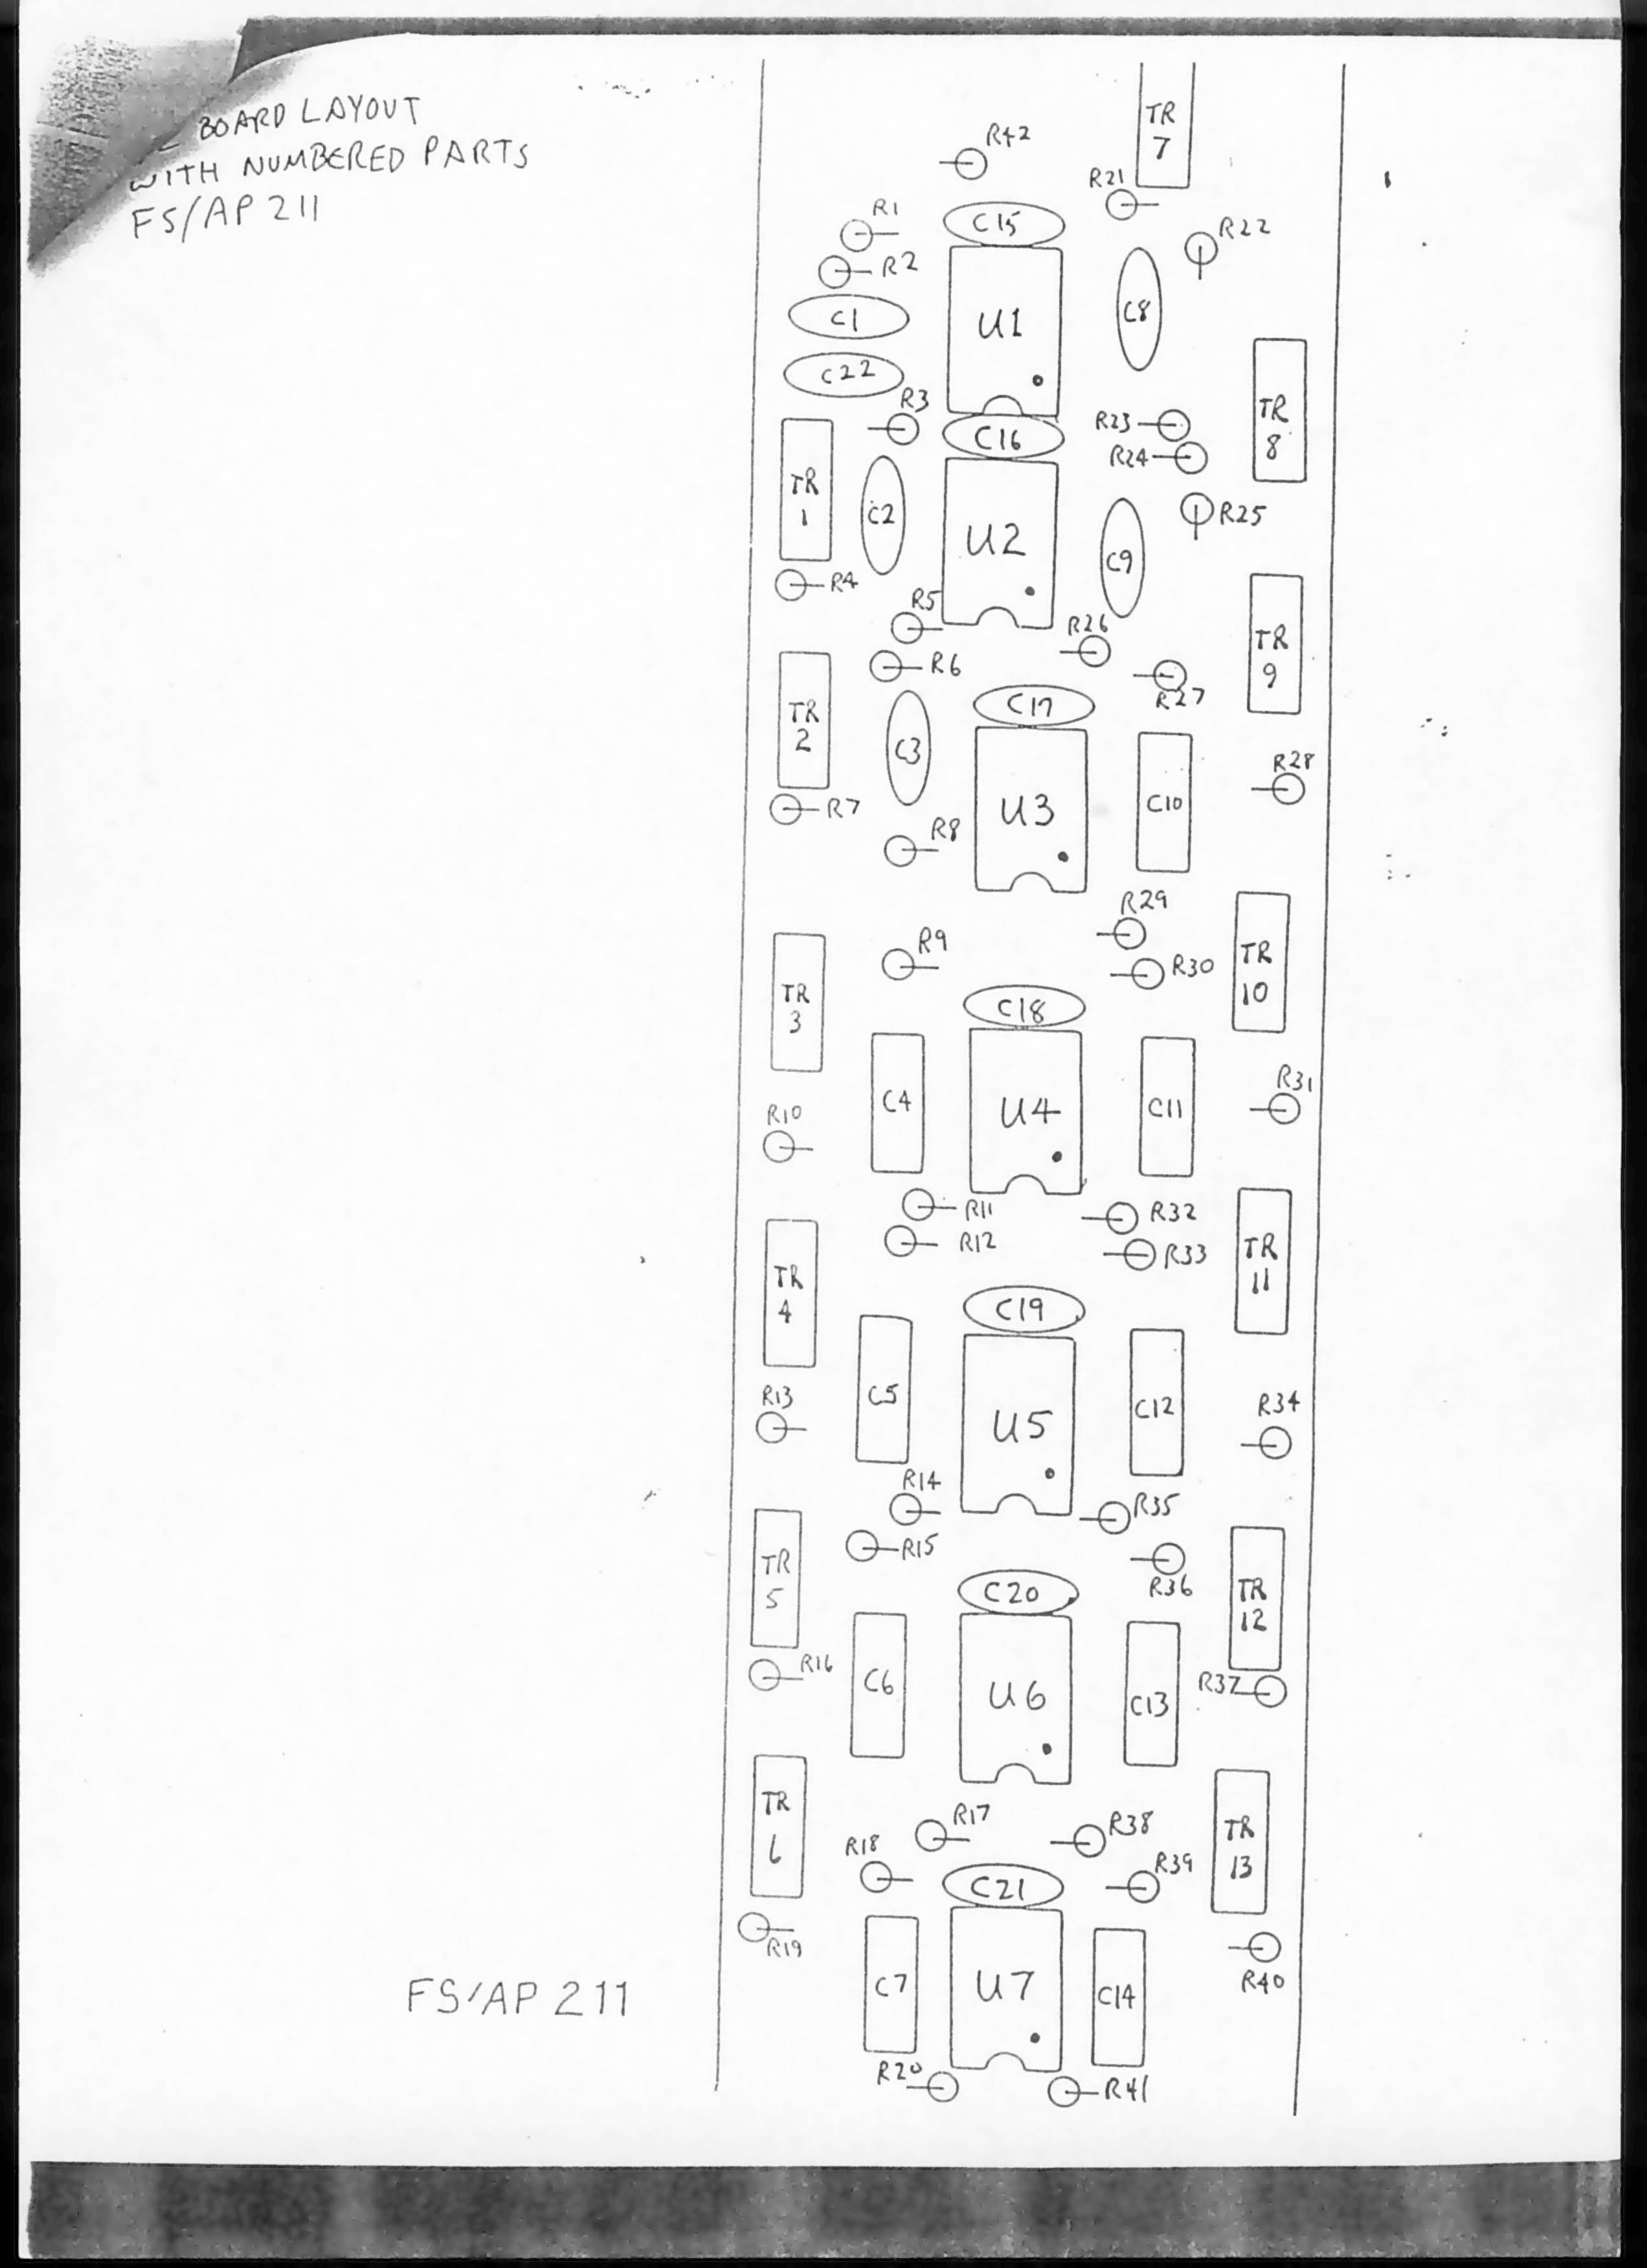 BOARD LAYOUT
WITH NUMBERED PARTS
FS/AP 211
TR
7
R42
R21
R1
C15
R22
R2
C1
U1
C8
C22
R3
TR
8
R23
C16
R24
TR
1
C2
U2
R25
C9
R4
R5
R26
TR
9
R6
R27
C17
TR
2
C3
R28
U3
C10
R7
R8
R29
R9
R30
TR
10
TR
3
C18
R31
C4
U4
C11
R10
R11
R32
R12
R33
TR
11
TR
4
C19
C5
U5
C12
R13
R34
R14
R35
R15
R36
TR
5
C20
TR
12
R16
C6
U6
C13
R37
TR
6
R17
R38
R18
R39
TR
13
C21
R19
R40
C7
U7
C14
FS/AP 211
R20
R41